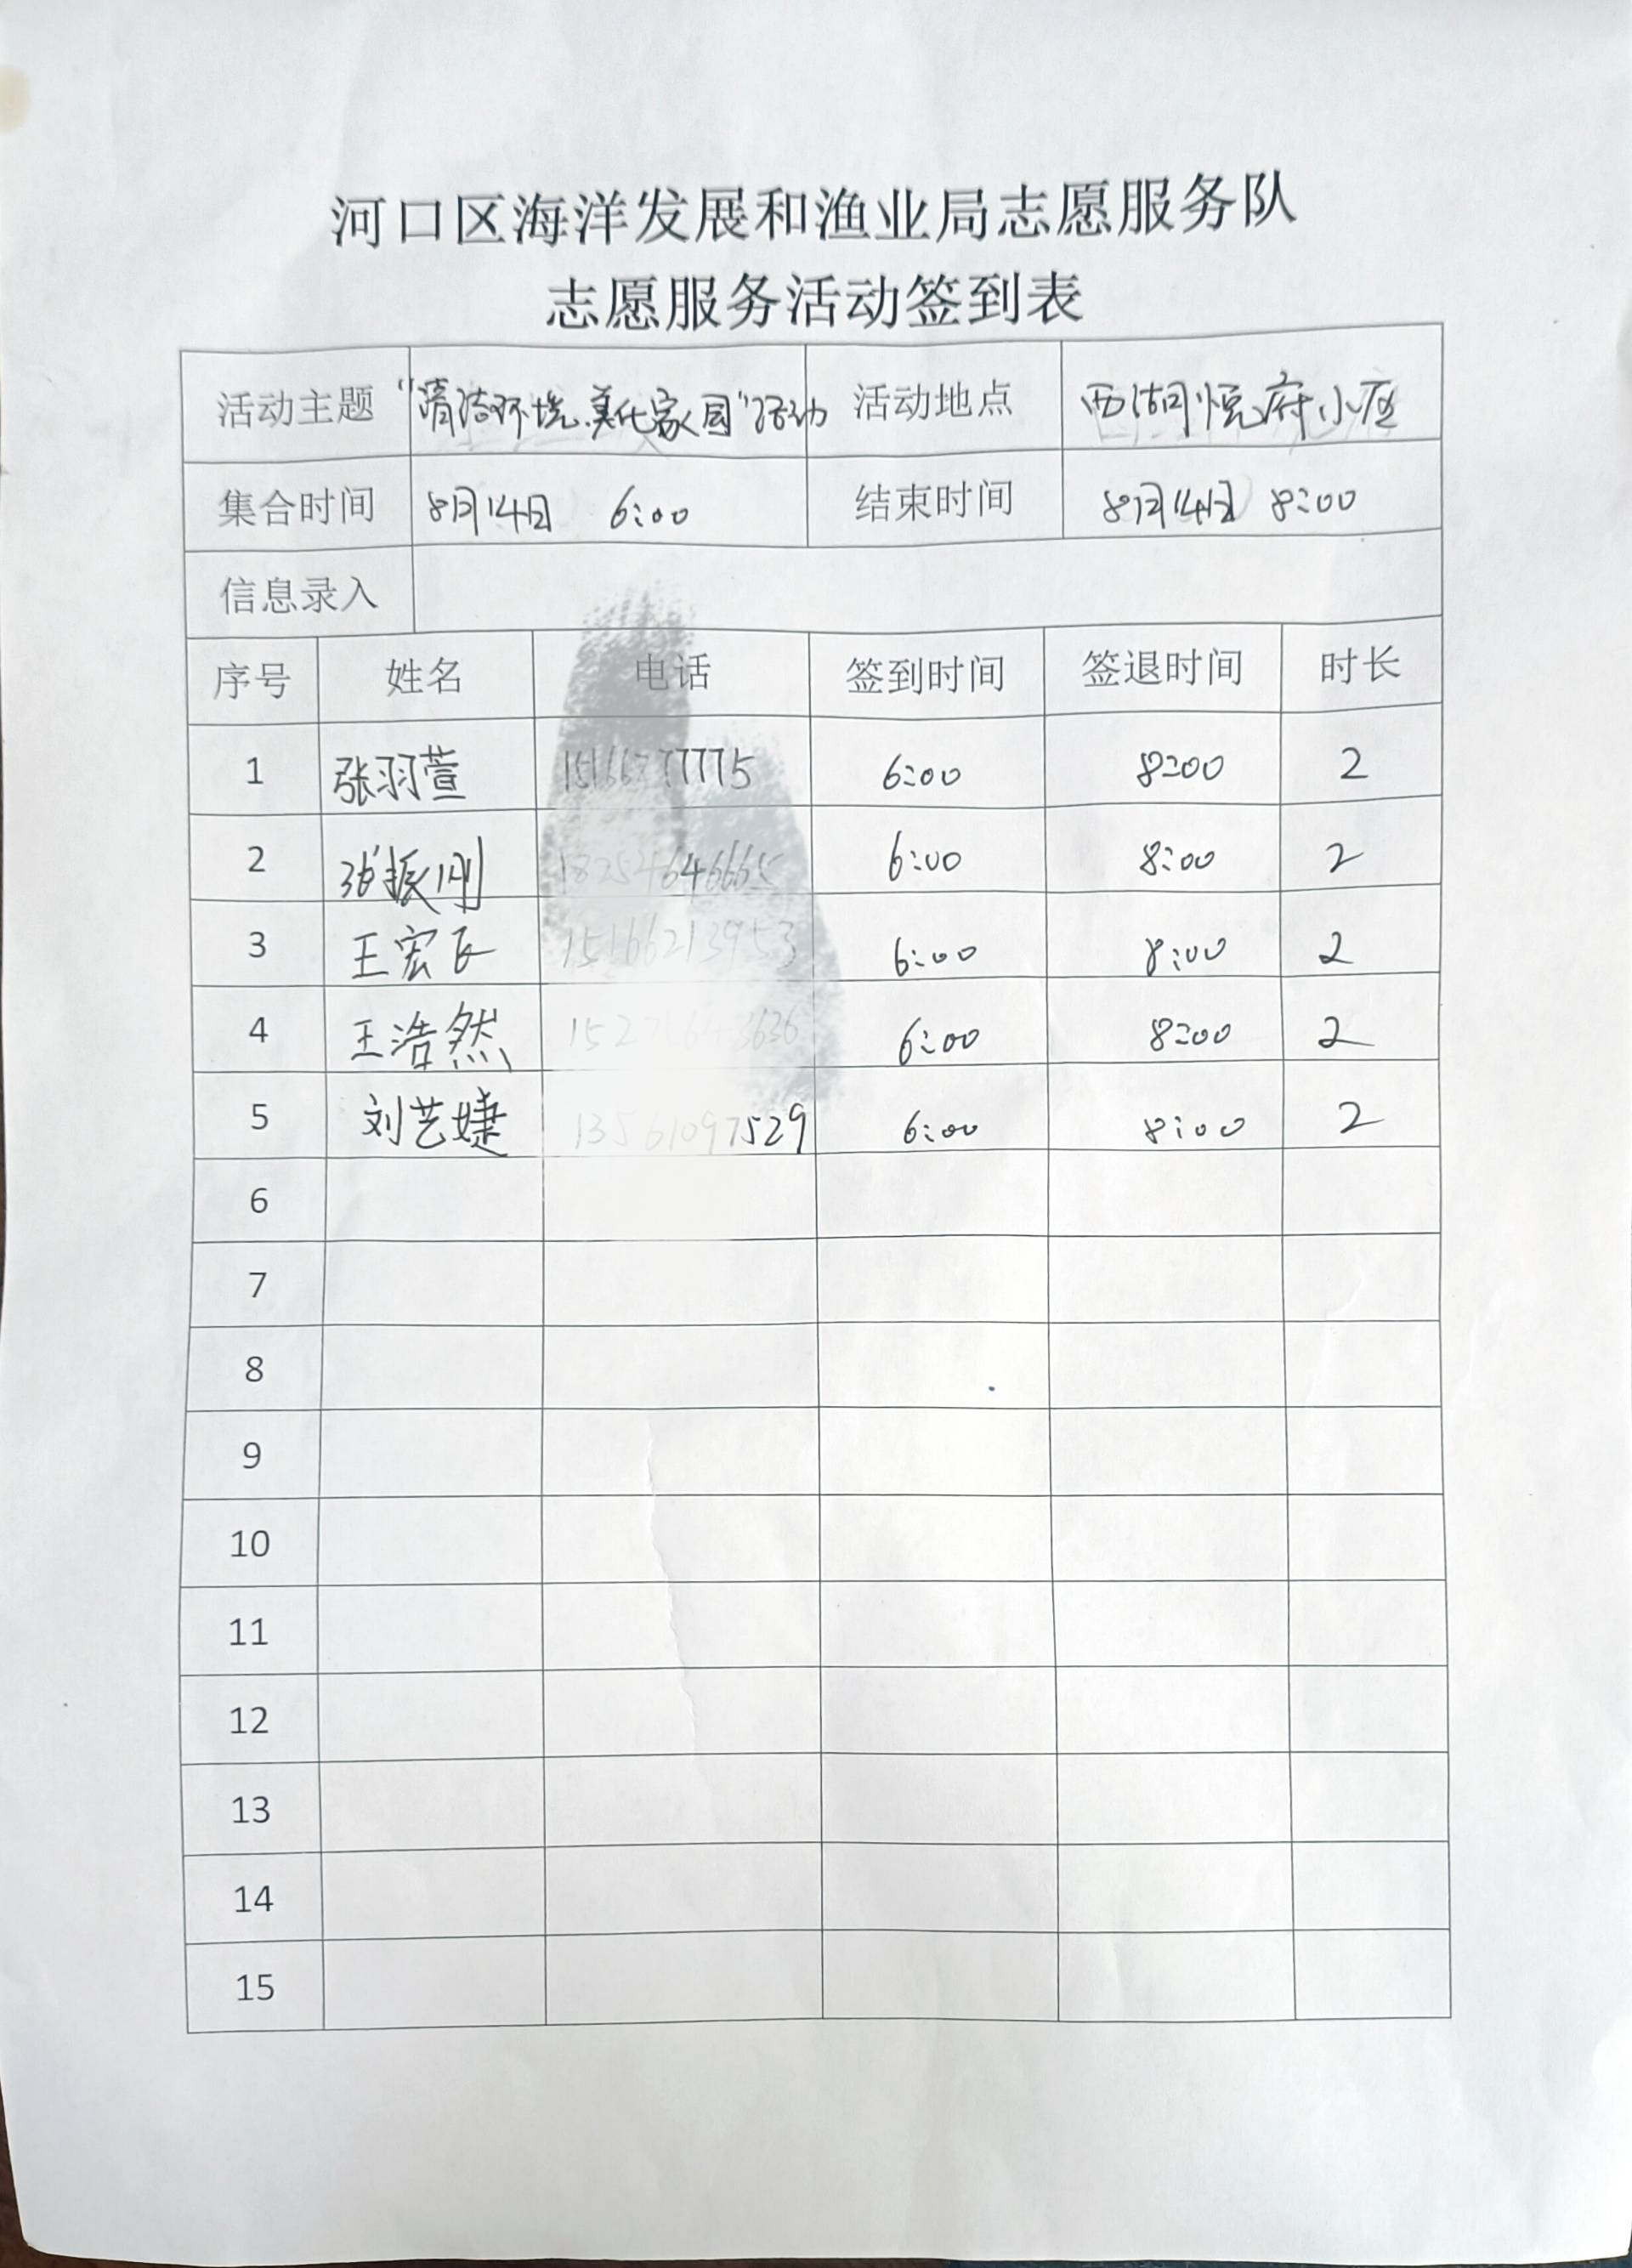 河口区海洋发展和渔业局志愿服务队
志愿服务活动签到表
活动主题 "清洁环境.美化家园"活动 活动地点 西湖悦府小区
集合时间 8月14日 6:00 结束时间 8月14日 8:00
信息录入
序号 姓名 电话 签到时间 签退时间 时长
1 张羽萱 6:00 8:00 2
2 张振刚 6:00 8:00 2
3 王宏 6:00 8:00 2
4 王浩然 6:00 8:00 2
5 刘艺婕 6:00 8:00 2
6
7
8
9
10
11
12
13
14
15